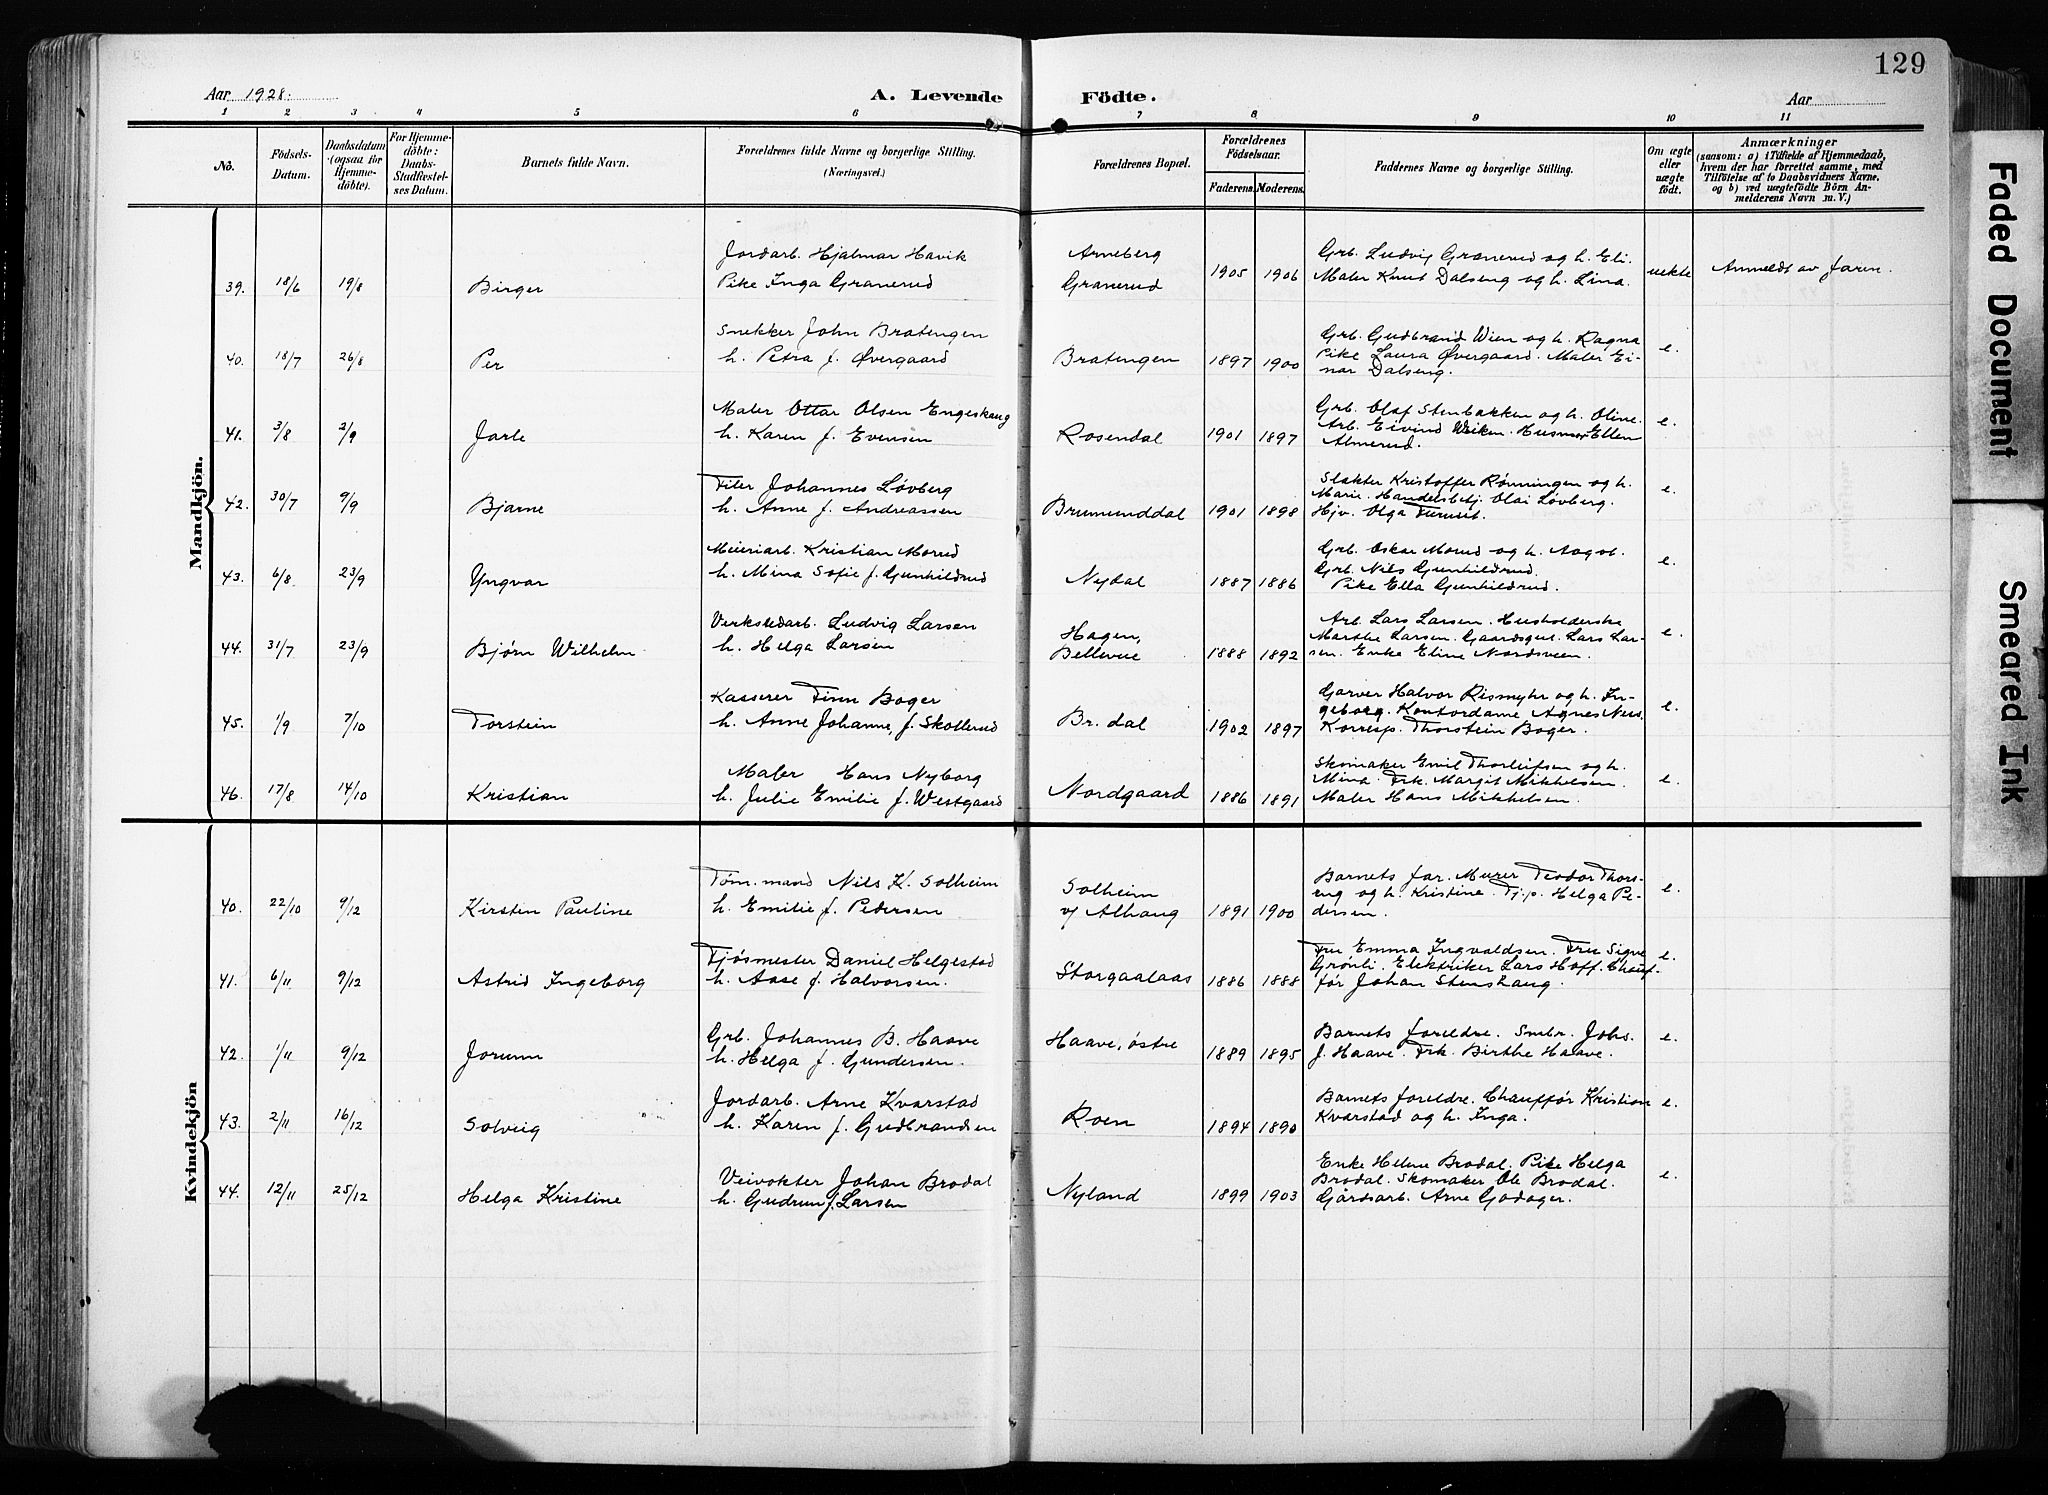 129
Aar 1928.
A. Levende Födte.
Aar
1 2 3 4 5 6 7 8 9 10 11
No.
Födsels-
Datum.
Daabsdatum
(ogsaa for
Hjemme-
döbte).
For Hjemme-
döbte:
Daabs-
Stadfæstel-
ses Datum.
Barnets fulde Navn.
Forældrenes fulde Navne og borgerlige Stilling.
(Næringsvei.)
Forældrenes Bopæl.
Forældrenes
Födselsaar.
Faderens. Moderens.
Faddernes Navne og borgerlige Stilling.
Om ægte
eller
uægte
födt.
Anmærkninger
(saasom: a) i Tilfælde af Hjemmedaab,
hvem der har forrettet samme, med
Tilföielse af to Daabsvidners Navne,
og b) ved uægtefödte Börn An-
melderens Navn m. V.)
Mandkjön.
39. 18/6 19/8 Birger
Jordarb. Hjalmar Havik
Pike Inga Granerud
Arneberg
Granerud
1905 1906
Grb. Ludvig Granerud og h. Eli.
Maler Knut Dalseng og h. Lina.
uekte
Anmeldt av faren.
40. 18/7 26/8 Per
Snekker John Bratengen
h. Petra f. Øvergaard
Bratengen
1897 1900
Grb. Gudbrand Wien og h. Ragna
Pike Laura Øvergaard. Maler Ei-
nar Dalseng.
e.
41. 3/8 2/9 Jarle
Maler Ottar Olsen Engeskaug
h. Karen f. Evensen
Rosendal
1901 1897
Grb. Olaf Stenbakken og h. Oline.
Arb. Eivind Weiken. Husmor Ellen
Almerud.
e.
42. 30/7 9/9 Bjarne
Filer Johannes Løvberg
h. Anne f. Andreassen
Brumunddal
1901 1898
Slakter Kristoffer Rønningen og h.
Marie. Handelsbetj. Olai Løvberg.
Hjv. Olga Furuset.
e.
43. 6/8 23/9 Yngvar
Meieriarb. Kristian Morud
h. Mina Sofie f. Gunhildrud
Nydal
1887 1886
Grb. Oskar Morud og h. Aagot.
Grb. Nils Gunhildrud.
Pike Ella Gunhildrud.
e.
44. 31/7 23/9 Bjørn Wilhelm
Verkstedarb. Ludvig Larsen
h. Helga Larsen
Hagen,
Bellevue
1888 1892
Arb. Lars Larsen. Husholderske
Marthe Larsen. Gaardsgut. Lars Lar-
sen. Enke Eline Nordsveen.
e.
45. 1/9 7/10 Torstein
Kasserer Finn Boger
h. Anne Johanne, f. Skollerud
Br. dal
1902 1897
Garver Halvor Rismyhr og h. In-
geborg. Kontordame Agnes Ness.
Korresp. Thorstein Boger.
e.
46. 17/8 14/10 Kristian
Maler Hans Nyborg
h. Julie Emilie f. Westgaard
Nordgaard
1886 1891
Skomaker Emil Thorleifsen og h.
Mina. Frk. Margit Mikkelsen.
Maler Hans Mikkelsen.
e.
Kvindekjön
40. 22/10 9/12 Kirsten Pauline
Tøm.mand Nils K. Solheim
h. Emilie f. Pedersen
Solheim
v/ Alhaug
1891 1900
Barnets far. Murer Teodor Thors-
eng og h. Kristine. Tj.p. Helga Pe-
dersen.
e.
41. 6/11 9/12 Astrid Ingeborg
Fjøsmester Daniel Helgestad
h. Aase f. Halvorsen.
Storgaalaas
1886 1888
Fru Emma Ingvaldsen. Fru Signe
Grønli. Elektriker Lars Hoff. Chauf-
før Johan Stenshaug.
e.
42. 1/11 9/12 Jorunn
Grb. Johannes B. Haave
h. Helga f. Gundersen.
Haave, østre
1889 1895
Barnets foreldre. Smbr. Johs.
J. Haave. Frk. Birthe Haave.
e.
43. 2/11 16/12 Solveig
Jordarb. Arne Kvarstad
h. Karen f. Gudbrandsen
Roen
1894 1890
Barnets foreldre. Chauffør Kristian
Kvarstad og h. Inga.
e.
44. 12/11 25/12 Helga Kristine
Veivokter Johan Brodal
h. Gudrun f. Larsen
Nyland
1899 1903
Enke Helene Brodal. Pike Helga
Brodal. Skomaker Ole Brodal.
Gårdsarb. Arne Godager.
e.
Faded Document
Smeared Ink